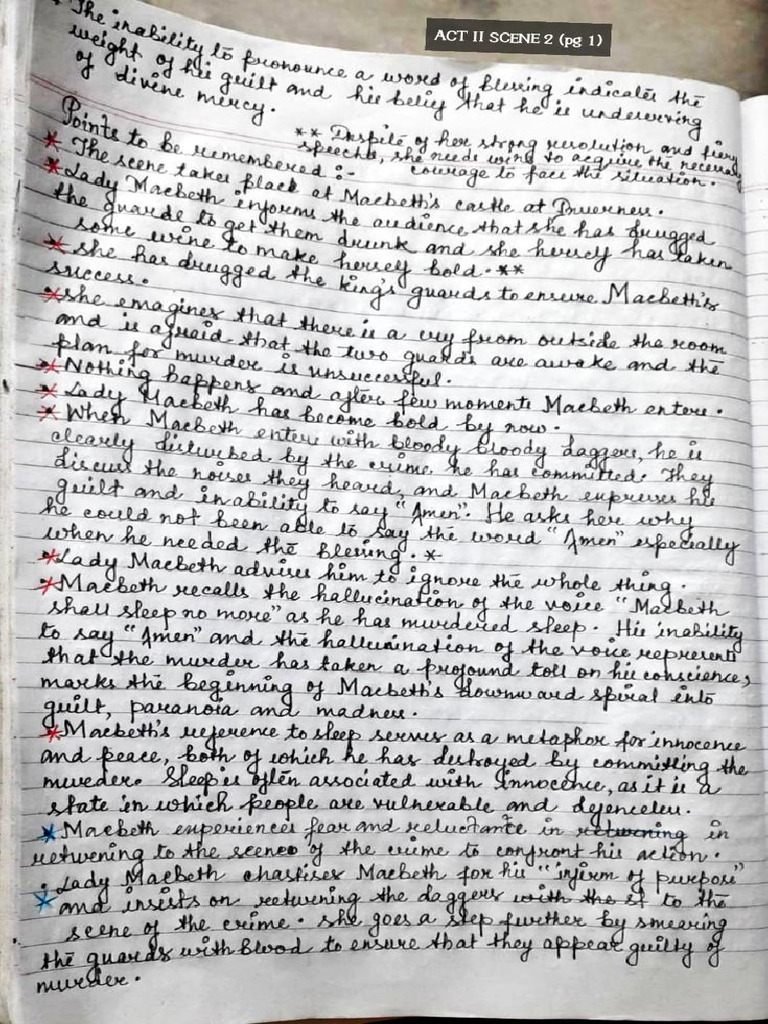 ACT II SCENE 2 (pg 1)
* The inability to pronounce a word of blessing indicates the
weight of his guilt and his belief that he is undeserving
of divine mercy.
** Despite of her strong resolution and fiery
speeche, she needs wine to acquire the necessary
courage to face the situation.
Points to be remembered :-
* The scene takes place at Macbeth's castle at Inverness.
* Lady Macbeth informs the audience that she has drugged
the guards to get them drunk and she herself has taken
some wine to make herself bold. **
* she has drugged the king's guards to ensure Macbeth's
success.
* she emagines that there is a cry from outside the room
and is afraid that the two guards are awake and the
plan for murder is unsuccessful.
* Nothing happens and after few moments Macbeth enters.
* Lady Macbeth has become bold by now.
* When Macbeth enters with bloody bloody daggers, he is
clearly disturbed by the crime he has committed. They
discuss the noises they heard, and Macbeth expresses his
guilt and inability to say "Amen". He asks her why
he could not been able to say the word "Amen" especially
when he needed the blessing. *
* Lady Macbeth advises him to ignore the whole thing.
* Macbeth recalls the hallucination of the voice "Macbeth
shall sleep no more" as he has murdered sleep. His inability
to say "Amen" and the hallucination of the voice represents
that the murder has taken a profound toll on his conscience,
marks the beginning of Macbeth's downward spiral into
guilt, paranoia and madness.
* Macbeth's reference to sleep serves as a metaphor for innocence
and peace, both of which he has destroyed by committing the
murder. Sleep is often associated with innocence, as it is a
state in which people are vulnerable and defenceless.
* Macbeth experiences fear and reluctance in returning in
returning to the scene of the crime to confront his action.
* Lady Macbeth chastises Macbeth for his "infirm of purpose"
and insists on returning the daggers with the st to the
scene of the crime. she goes a step further by smearing
the guards with blood to ensure that they appear guilty of
murder.